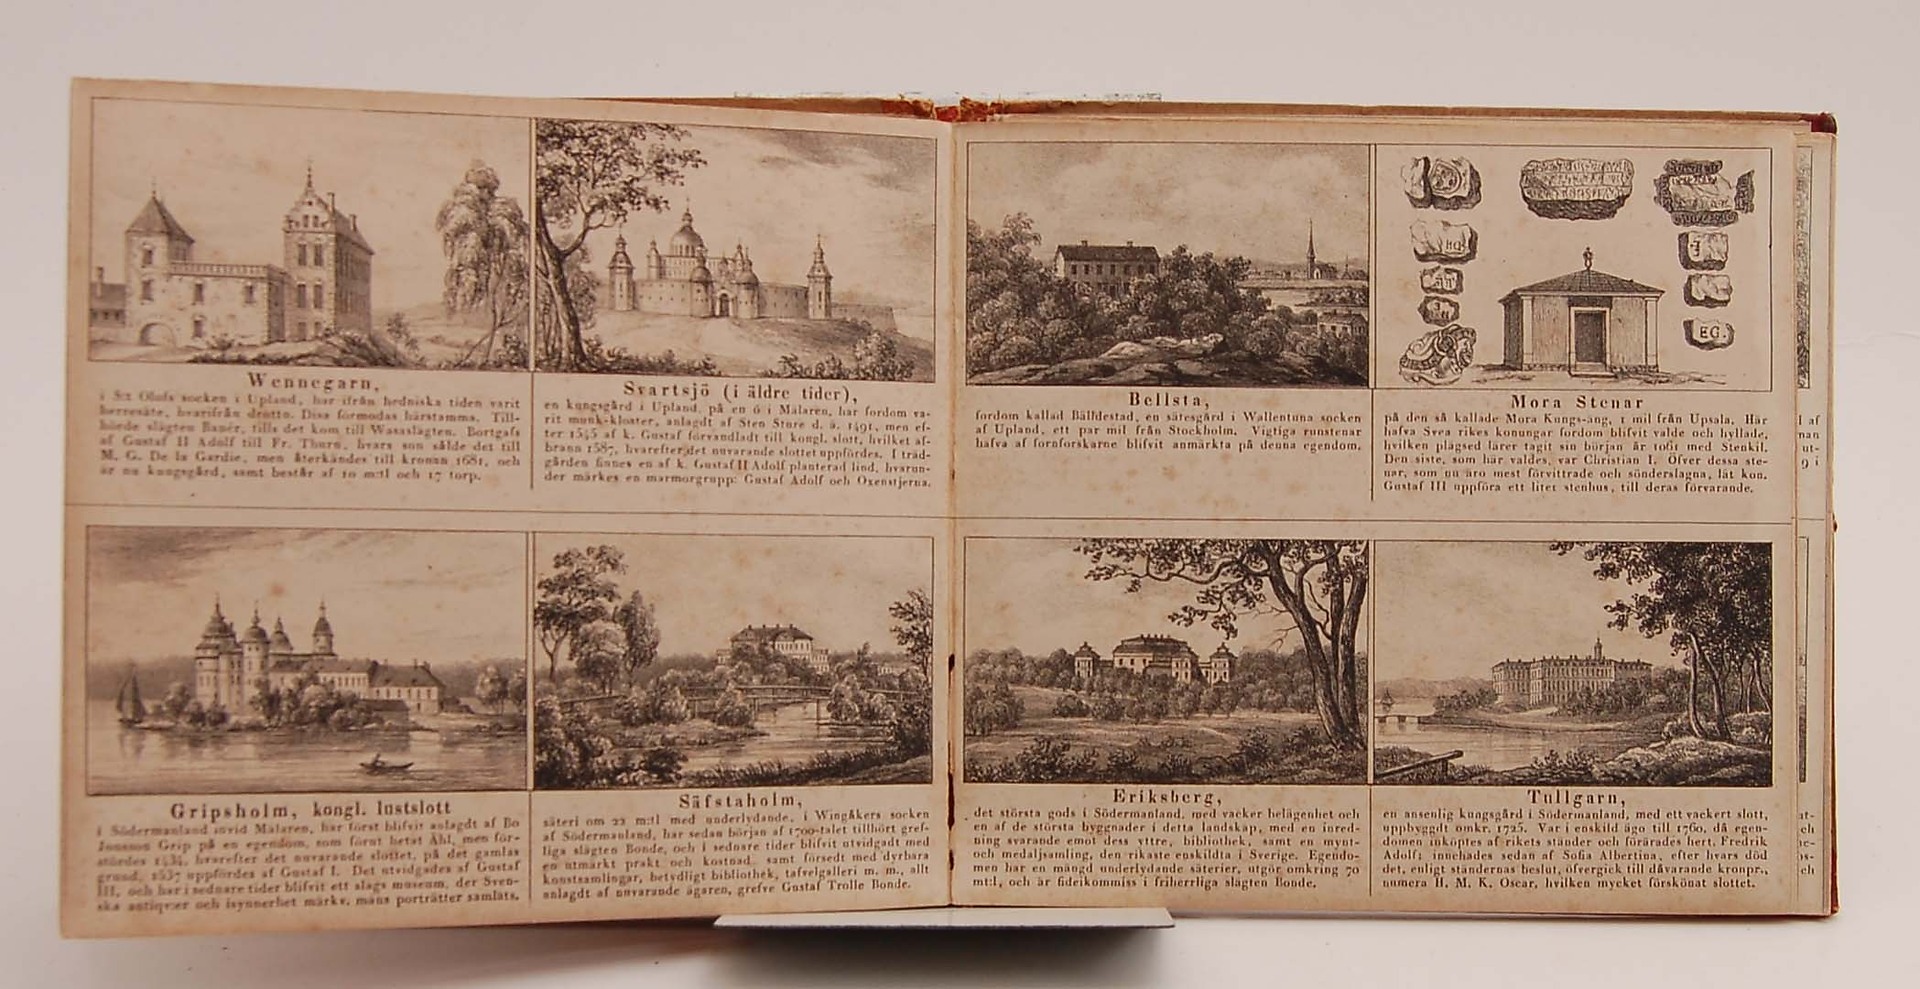 Wennegarn,
i S:t Olofs socken i Upland, har ifrån hedniska tiden varit
herresäte, hvarifrån drottn. Disa förmodas härstamma. Till-
hörde slägten Banér, tills det kom till Wasaslägten. Bortgafs
af Gustaf II Adolf till Fr. Thurn, hvars son sålde det till
M. G. De la Gardie, men återkändes till kronan 1681, och
är nu kungsgård, samt består af 10 m:tl och 17 torp.
Svartsjö (i äldre tider),
en kungsgård i Upland, på en ö i Mälaren, har fordom va-
rit munk-kloster, anlagdt af Sten Sture d. ä. 1491, men ef-
ter 1545 af k. Gustaf förvandladt till kongl. slott, hvilket af-
brann 1587, hvarefter det nuvarande slottet uppfördes. I träd-
gården finnes en af k. Gustaf II Adolf planterad lind, hvarun-
der märkes en marmorgrupp: Gustaf Adolf och Oxenstjerna.
Gripsholm, kongl. lustslott
i Södermanland invid Mälaren, har först blifvit anlagdt af Bo
Jonsson Grip på en egendom, som förut hetat Ähl, men för-
stördes 1434, hvarefter det nuvarande slottet, på det gamlas
grund, 1537 uppfördes af Gustaf I. Det utvidgades af Gustaf
III, och har i sednare tider blifvit ett slags museum, der Sven-
ska antiqv:er och isynnerhet märkv. mäns porträtter samlats.
Säfstaholm,
säteri om 22 m:tl med underlydande, i Wingåkers socken
af Södermanland, har sedan början af 1700-talet tillhört gref-
liga slägten Bonde, och i sednare tider blifvit utvidgadt med
en utmärkt prakt och kostnad samt försedt med dyrbara
konstsamlingar, betydligt bibliothek, tafvelgalleri m. m., allt
anlagdt af nuvarande ägaren, grefve Gustaf Trolle Bonde.
Bellsta,
fordom kallad Bälldestad, en sätesgård i Wallentuna socken
af Upland, ett par mil från Stockholm. Vigtiga runstenar
hafva af fornforskarne blifvit anmärkta på denna egendom.
EG.
Mora Stenar
på den så kallade Mora Kungs-äng, 1 mil från Upsala. Här
hafva Svea rikes konungar fordom blifvit valde och hyllade,
hvilken plägsed lärer tagit sin början år 1061 med Stenkil.
Den siste, som här valdes, var Christian I. Öfver dessa ste-
nar, som nu äro mest förvittrade och sönderslagna, lät kon.
Gustaf III uppföra ett litet stenhus, till deras förvarande.
Eriksberg,
det största gods i Södermanland, med vacker belägenhet och
en af de största byggnader i detta landskap, med en inred-
ning svarande emot dess yttre, bibliothek, samt en mynt-
och medaljsamling, den rikaste enskildta i Sverige. Egendo-
men har en mängd underlydande säterier, utgör omkring 70
mt:l, och är fideikommiss i friherrliga slägten Bonde.
Tullgarn,
en ansenlig kungsgård i Södermanland, med ett vackert slott,
uppbyggdt omkr. 1725. Var i enskild ägo till 1760, då egen-
domen inköptes af rikets ständer och förärades hert. Fredrik
Adolf; innehades sedan af Sofia Albertina, efter hvars död
det, enligt ständernas beslut, öfvergick till dåvarande kronpr.,
numera H. M. K. Oscar, hvilken mycket förskönat slottet.